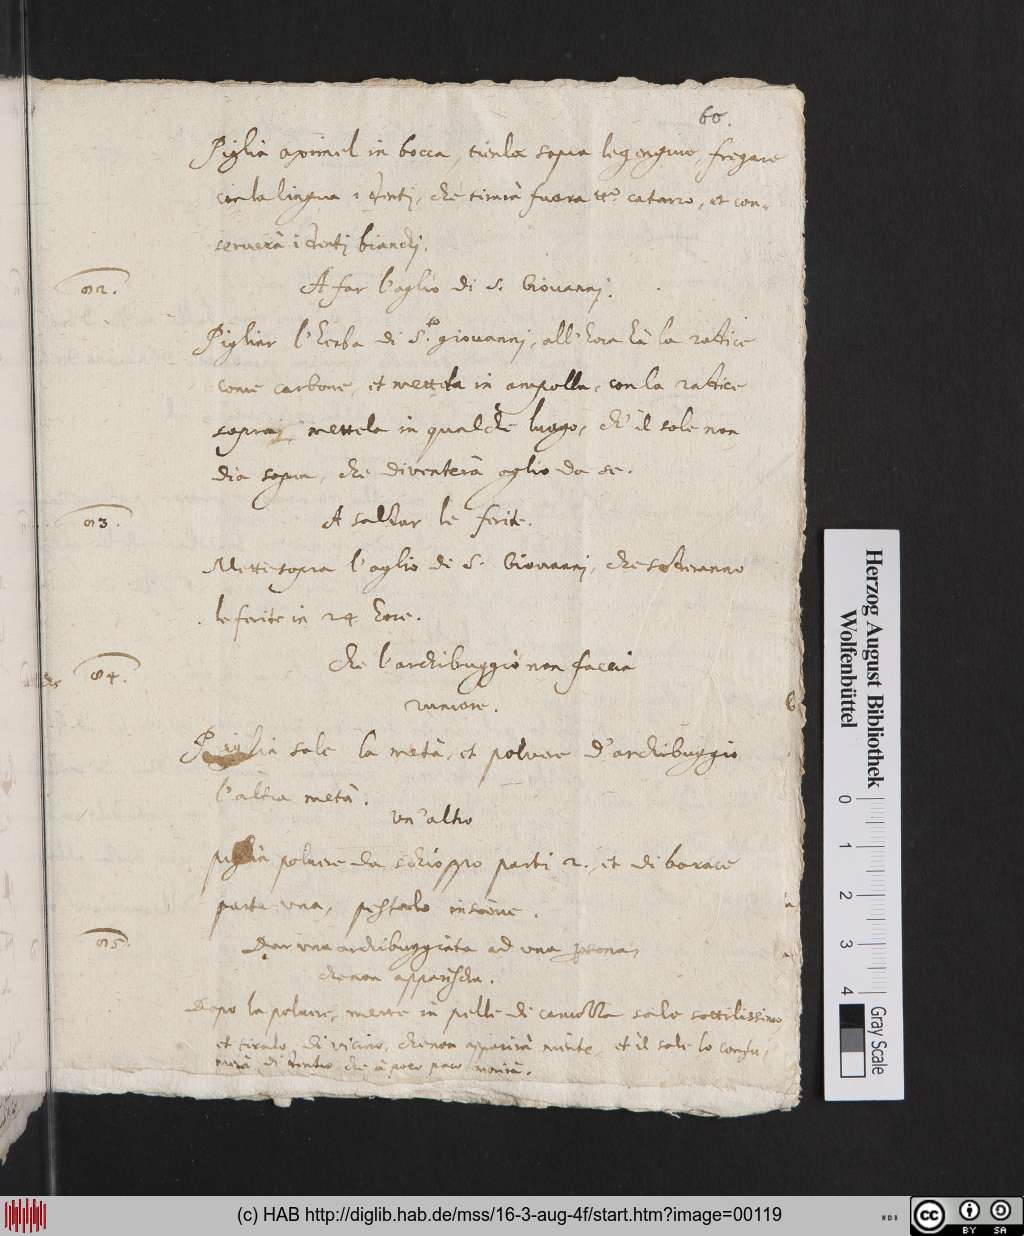 60.
Piglia oximel in bocca, tienlo sopra le gengiue, fregare
con la lingua i denti, che tirarà fuora tt.o catarro, et con-
seruerà i denti bianchi.
92.
A far l'oglio di S. Giouanni.
Pigliar l'herba di S.to giouanni, all'hora hà la radice
come carbone, et mettela in ampolla, con la radice
sopra, mettela in qualche luogo, ch'il sole non
dia sopra, che diventerà oglio da se.
93.
A saldar le ferite.
Mette sopra l'oglio di S. Giouanni, che salderanno
le ferite in 24 hore.
94.
Che l'archibuggio non faccia
rumore.
Piglia sale la metà, et poluere d'archibuggio
l'altra metà.
Un'altro
piglia poluere da schioppo parti 2., et di borace
parte una, pestarlo insieme.
95.
Dar una archibuggiata ad una persona,
che non apparischa.
Dopo la poluere, mette in pelle di sale sottilissimo
et tiralo di vicino, che non apparirà niente, et il sale lo consu-
merà di dentro che à poco poco morirà.
Herzog August Bibliothek
Wolfenbüttel
0 1 2 3 4
Gray Scale
(c) HAB http://diglib.hab.de/mss/16-3-aug-4f/start.htm?image=00119
WDB
cc BY SA